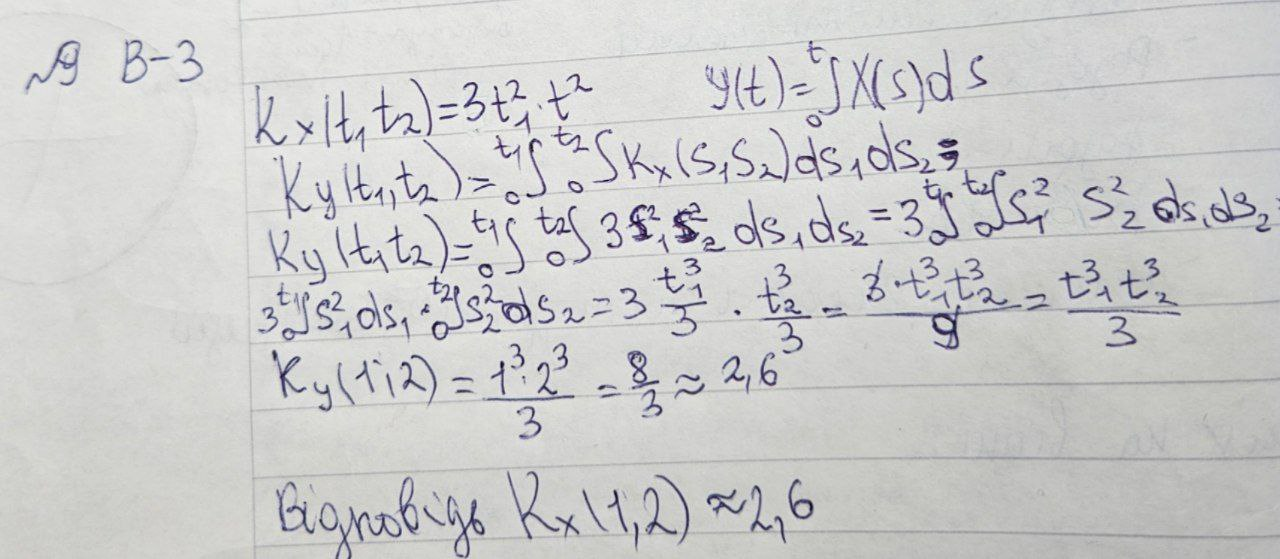 №9 В-3
Kx(t₁t₂)=3t₁²·t² y(t)=₀∫ᵗX(s)ds
Ky(t₁,t₂)=₀∫ᵗ¹ ₀∫ᵗ² Kx(s₁s₂)ds₁ds₂=
Ky(t₁t₂)=₀∫ᵗ¹ ₀∫ᵗ² 3s₁²s₂² ds₁ds₂=3₀∫ᵗ¹ ₀∫ᵗ² s₁² s₂² ds₁ds₂=
3₀∫ᵗ¹ s₁²ds₁·₀∫ᵗ² s₂²ds₂=3 t₁³/3 · t₂³/3 = 3·t₁³t₂³/9 = t₁³t₂³/3
Ky(1;2)=1³·2³/3=8/3≈2,6
Відповідь Kx(1,2)≈2,6